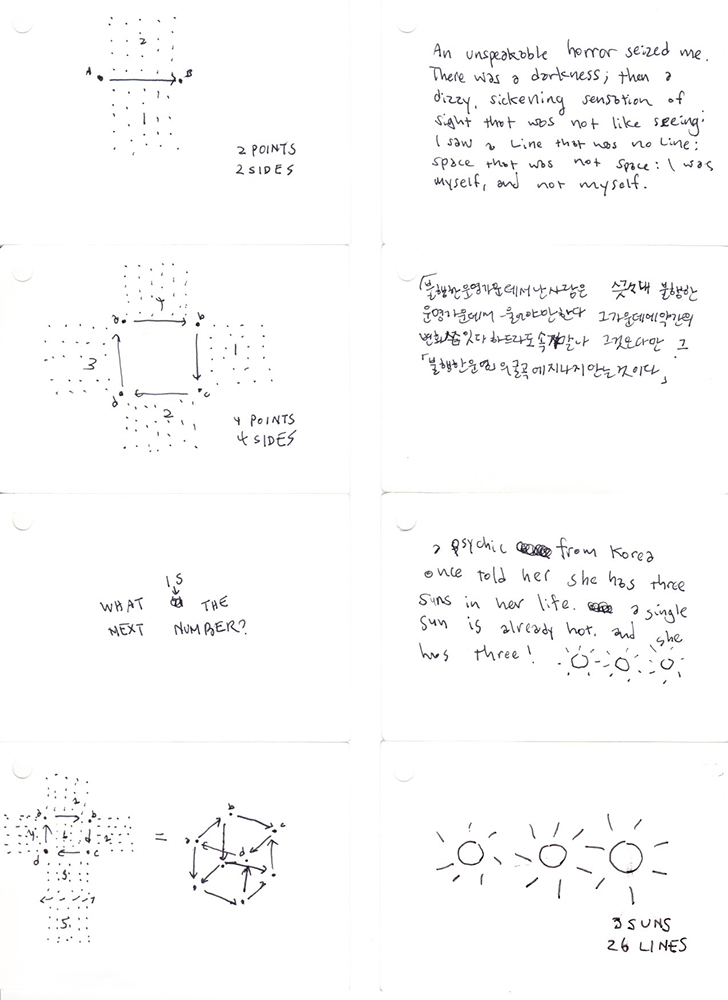 2
A B
1
2 POINTS
2 SIDES
An unspeakable horror seized me.
There was a darkness; then a
dizzy, sickening sensation of
sight that was not like seeing:
I saw a Line that was no Line:
space that was not space: I was
myself, and not myself.
4
a b
3 1
d c
2
4 POINTS
4 SIDES
「불행한운명가운데서난사람은 끗끗내 불행한
운명가운데서 울어야만한다 그가운데에약간의
변화쯤잇다하드라도속지말나 그것은다만 그
「불행한운명의굴곡에지나지안는것이다」
IS
WHAT THE
NEXT NUMBER?
a psychic from Korea
once told her she has three
suns in her life. a single
sun is already hot. and she
has three!
a b
4 d
d c
5
5
=
b
a c
d
3 SUNS
26 LINES